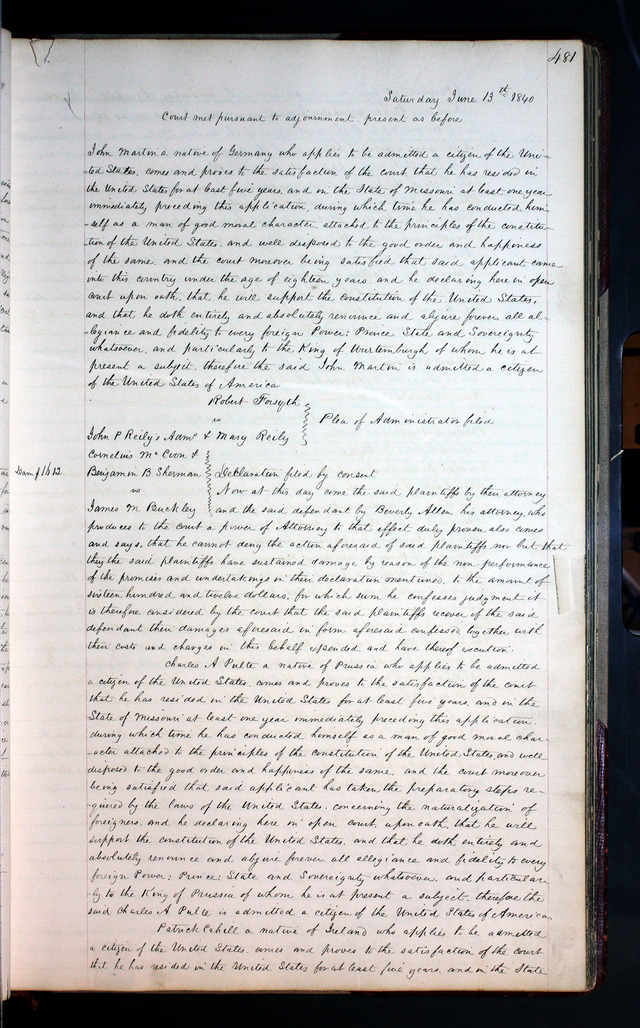 481
Saturday June 13th 1840
Court met pursuant to adjournment present as before
John Martin a native of Germany who applies to be admitted a citizen of the Uni-
-ted States, comes and proves to the satisfaction of the court that he has resided in
the United States for at least five years, and in the State of Missouri at least one year
immediately preceding this application, during which time he has conducted him-
-self as a man of good moral character, attached to the principles of the constitu-
-tion of the United States, and well disposed to the good order and happiness
of the same, and the court moreover being satisfied that said applicant came
into this country under the age of eighteen years, and he declaring here in open
court upon oath, that he will support the constitution of the United States,
and that he doth entirely and absolutely renounce and abjure forever all al-
-legiance and fidelity to every foreign Power, Prince State and Sovereignty
whatsoever, and particularly to the King of Wurtemburgh of whom he is at
present a subject, therefore the said John Martin is admitted a citizen
of the United States of America
Robert Forsyth
vs
Plea of Administrator filed
John P Reily's Admr & Mary Reily
Cornelius McCoon &
Dam $1612.
Benjamin B Sherman
Declaration filed by consent
vs
Now at this day come the said plaintiffs by their attorney
James M Buckley
and the said defendant by Beverly Allen his attorney, who
produces to the court a power of Attorney to that effect duly proven also comes
and says, that he cannot deny the action aforesaid of said plaintiffs nor but that
they the said plaintiffs have sustained damage by reason of the non-performance
of the promises and undertakings in their declaration mentioned, to the amount of
sixteen hundred and twelve dollars, for which sum he confesses judgment it
is therefore considered by the court that the said plaintiffs recover of the said
defendant their damages aforesaid in form aforesaid confessed, together with
their costs and charges in this behalf expended, and have thereof execution.
Charles A Pulte a native of Prussia who applies to be admitted
a citizen of the United States, comes and proves to the satisfaction of the court
that he has resided in the United States for at least five years, and in the
State of Missouri at least one year immediately preceding this application
during which time he has conducted himself as a man of good moral char-
-acter attached to the principles of the constitution of the United States, and well
disposed to the good order and happiness of the same, and the court moreover
being satisfied that said applicant has taken the preparatory steps re-
-quired by the laws of the United States, concerning the naturalization of
foreigners, and he declaring here in open court, upon oath, that he will
support the constitution of the United States, and that he doth entirely and
absolutely renounce and abjure forever all allegiance and fidelity to every
foreign Power, Prince, State and Sovereignty whatsoever, and particular-
-ly to the King of Prussia of whom he is at present a subject, therefore the
said Charles A Pulte is admitted a citizen of the United States of America
Patrick Cahill a native of Ireland who applies to be admitted
a citizen of the United States, comes and proves to the satisfaction of the court
that he has resided in the United States for at least five years, and in the State